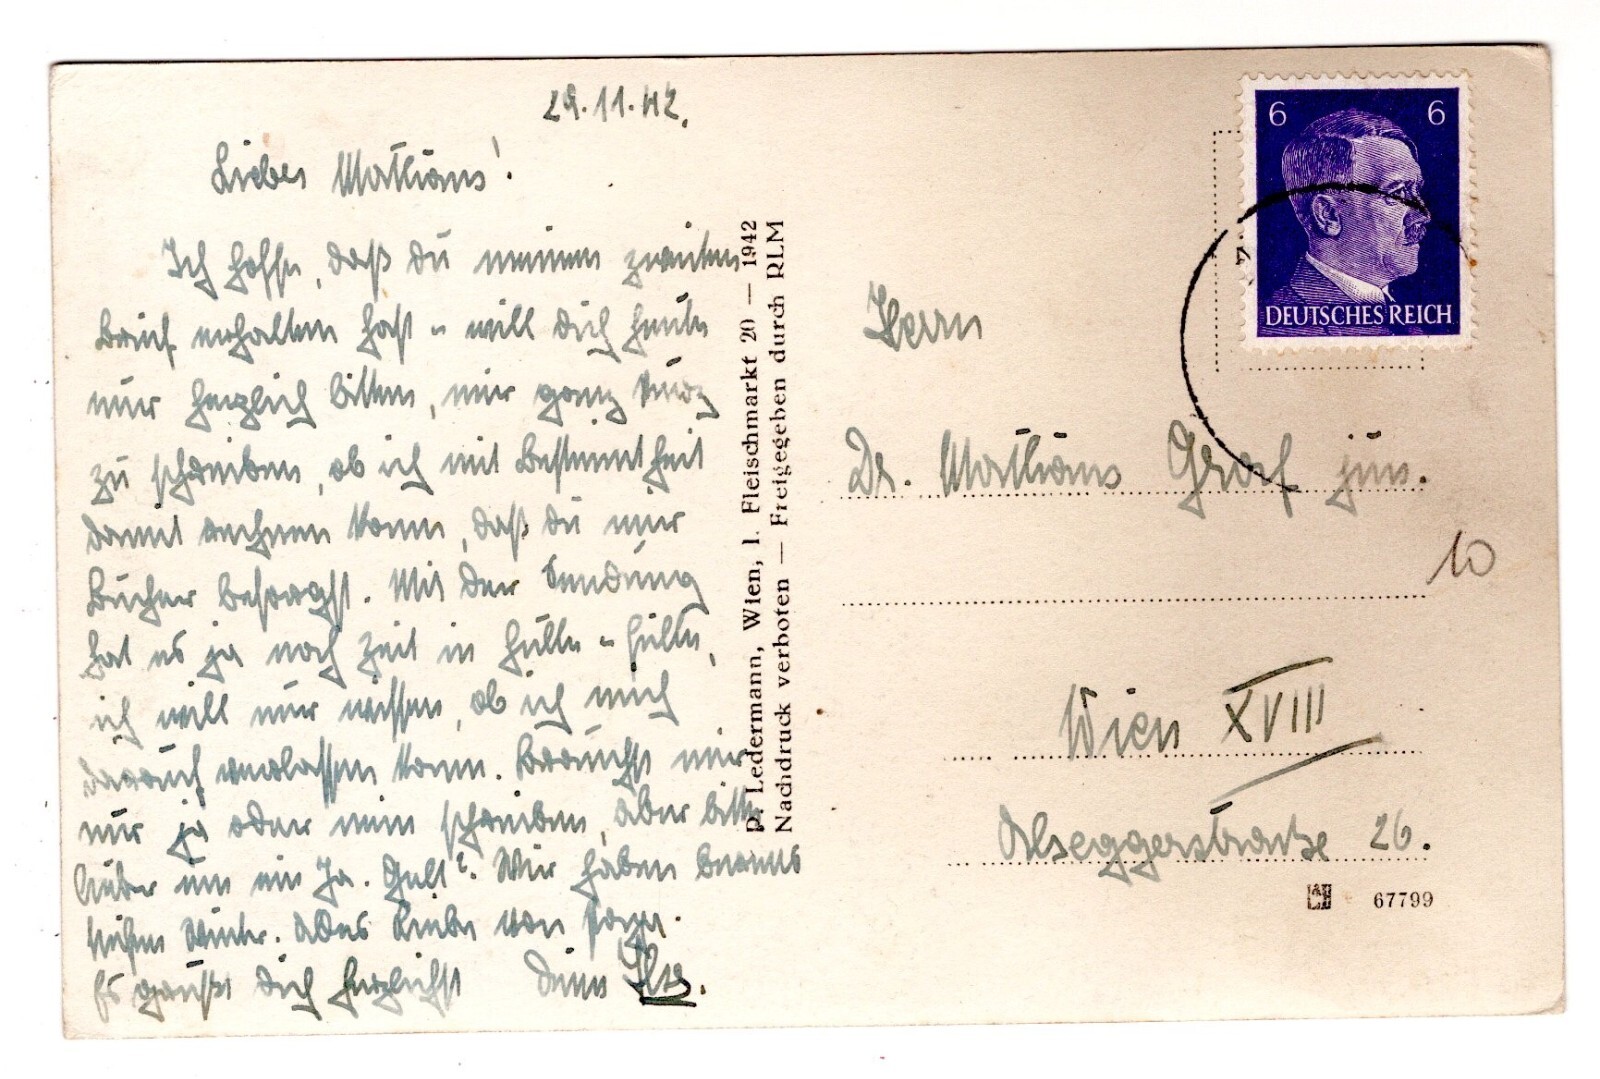 29.11.42.
Lieber Matthias!
Ich hoffe, daß du meinen zweiten
Brief erhalten hast u. will dich heute
nur herzlich bitten, mir ganz kurz
zu schreiben, ob ich mit Bestimmtheit
damit rechnen kann, daß du mir
Bücher besorgst. Mit der Sendung
hat es ja noch Zeit in Hülle u. Fülle,
ich will nur wissen, ob ich mich
darauf verlassen kann. Brauchst mir
nur ja oder nein schreiben, aber bitte
lieber um ein Ja. Gelt? Wir haben bereits
tiefen Winter. Alles Liebe von
Es grüßt dich herzlichst deine
P. Ledermann, Wien, I. Fleischmarkt 20 — 1942
Nachdruck verboten — Freigegeben durch RLM
6 6
DEUTSCHES REICH
Herrn
Dr. Matthias Graf jun.
10
Wien XVIII
Alseggerstraße 26.
67799